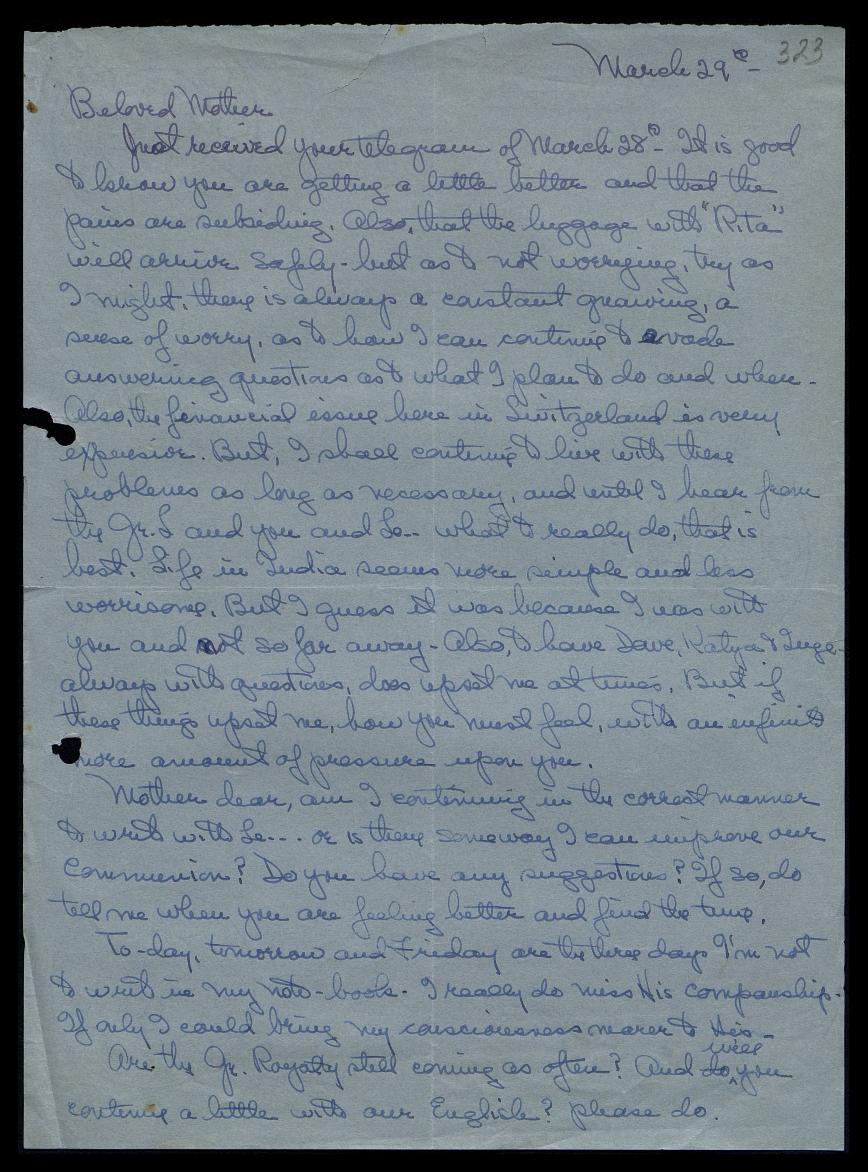 323
March 29th -
Beloved Mother
Just received your telegram of March 28th - It is good
to know you are getting a little better and that the
pains are subsiding. Also, that the luggage with "Rita"
will arrive safely - but as to not worrying, try as
I might, there is always a constant gnawing, a
sense of worry, as to how I can continue to evade
answering questions as to what I plan to do and when -
Also, the financial issue here in Switzerland is very
expensive. But, I shall continue to live with these
problems as long as necessary, and until I hear from
the Gr. L and you and Le-- what to really do, that is
best. Life in India seems more simple and less
worrisome. But I guess it was because I was with
you and not so far away - Also, to have Dave, Katya & Inge -
always with questions, does upset me at times. But if
these things upset me, how you must feel, with an infinite
more amount of pressure upon you.
Mother dear, am I continuing in the correct manner
to write with Le--- or is there someway I can improve our
Communion? Do you have any suggestions? If so, do
tell me when you are feeling better and find the time.
To-day, tomorrow and Friday are the three days I'm not
to write in my note-book - I really do miss His companship -
If only I could bring my consciousness nearer to His -
Are the Gr. Royalty still coming as often? And do will you
continue a little with our English? please do.